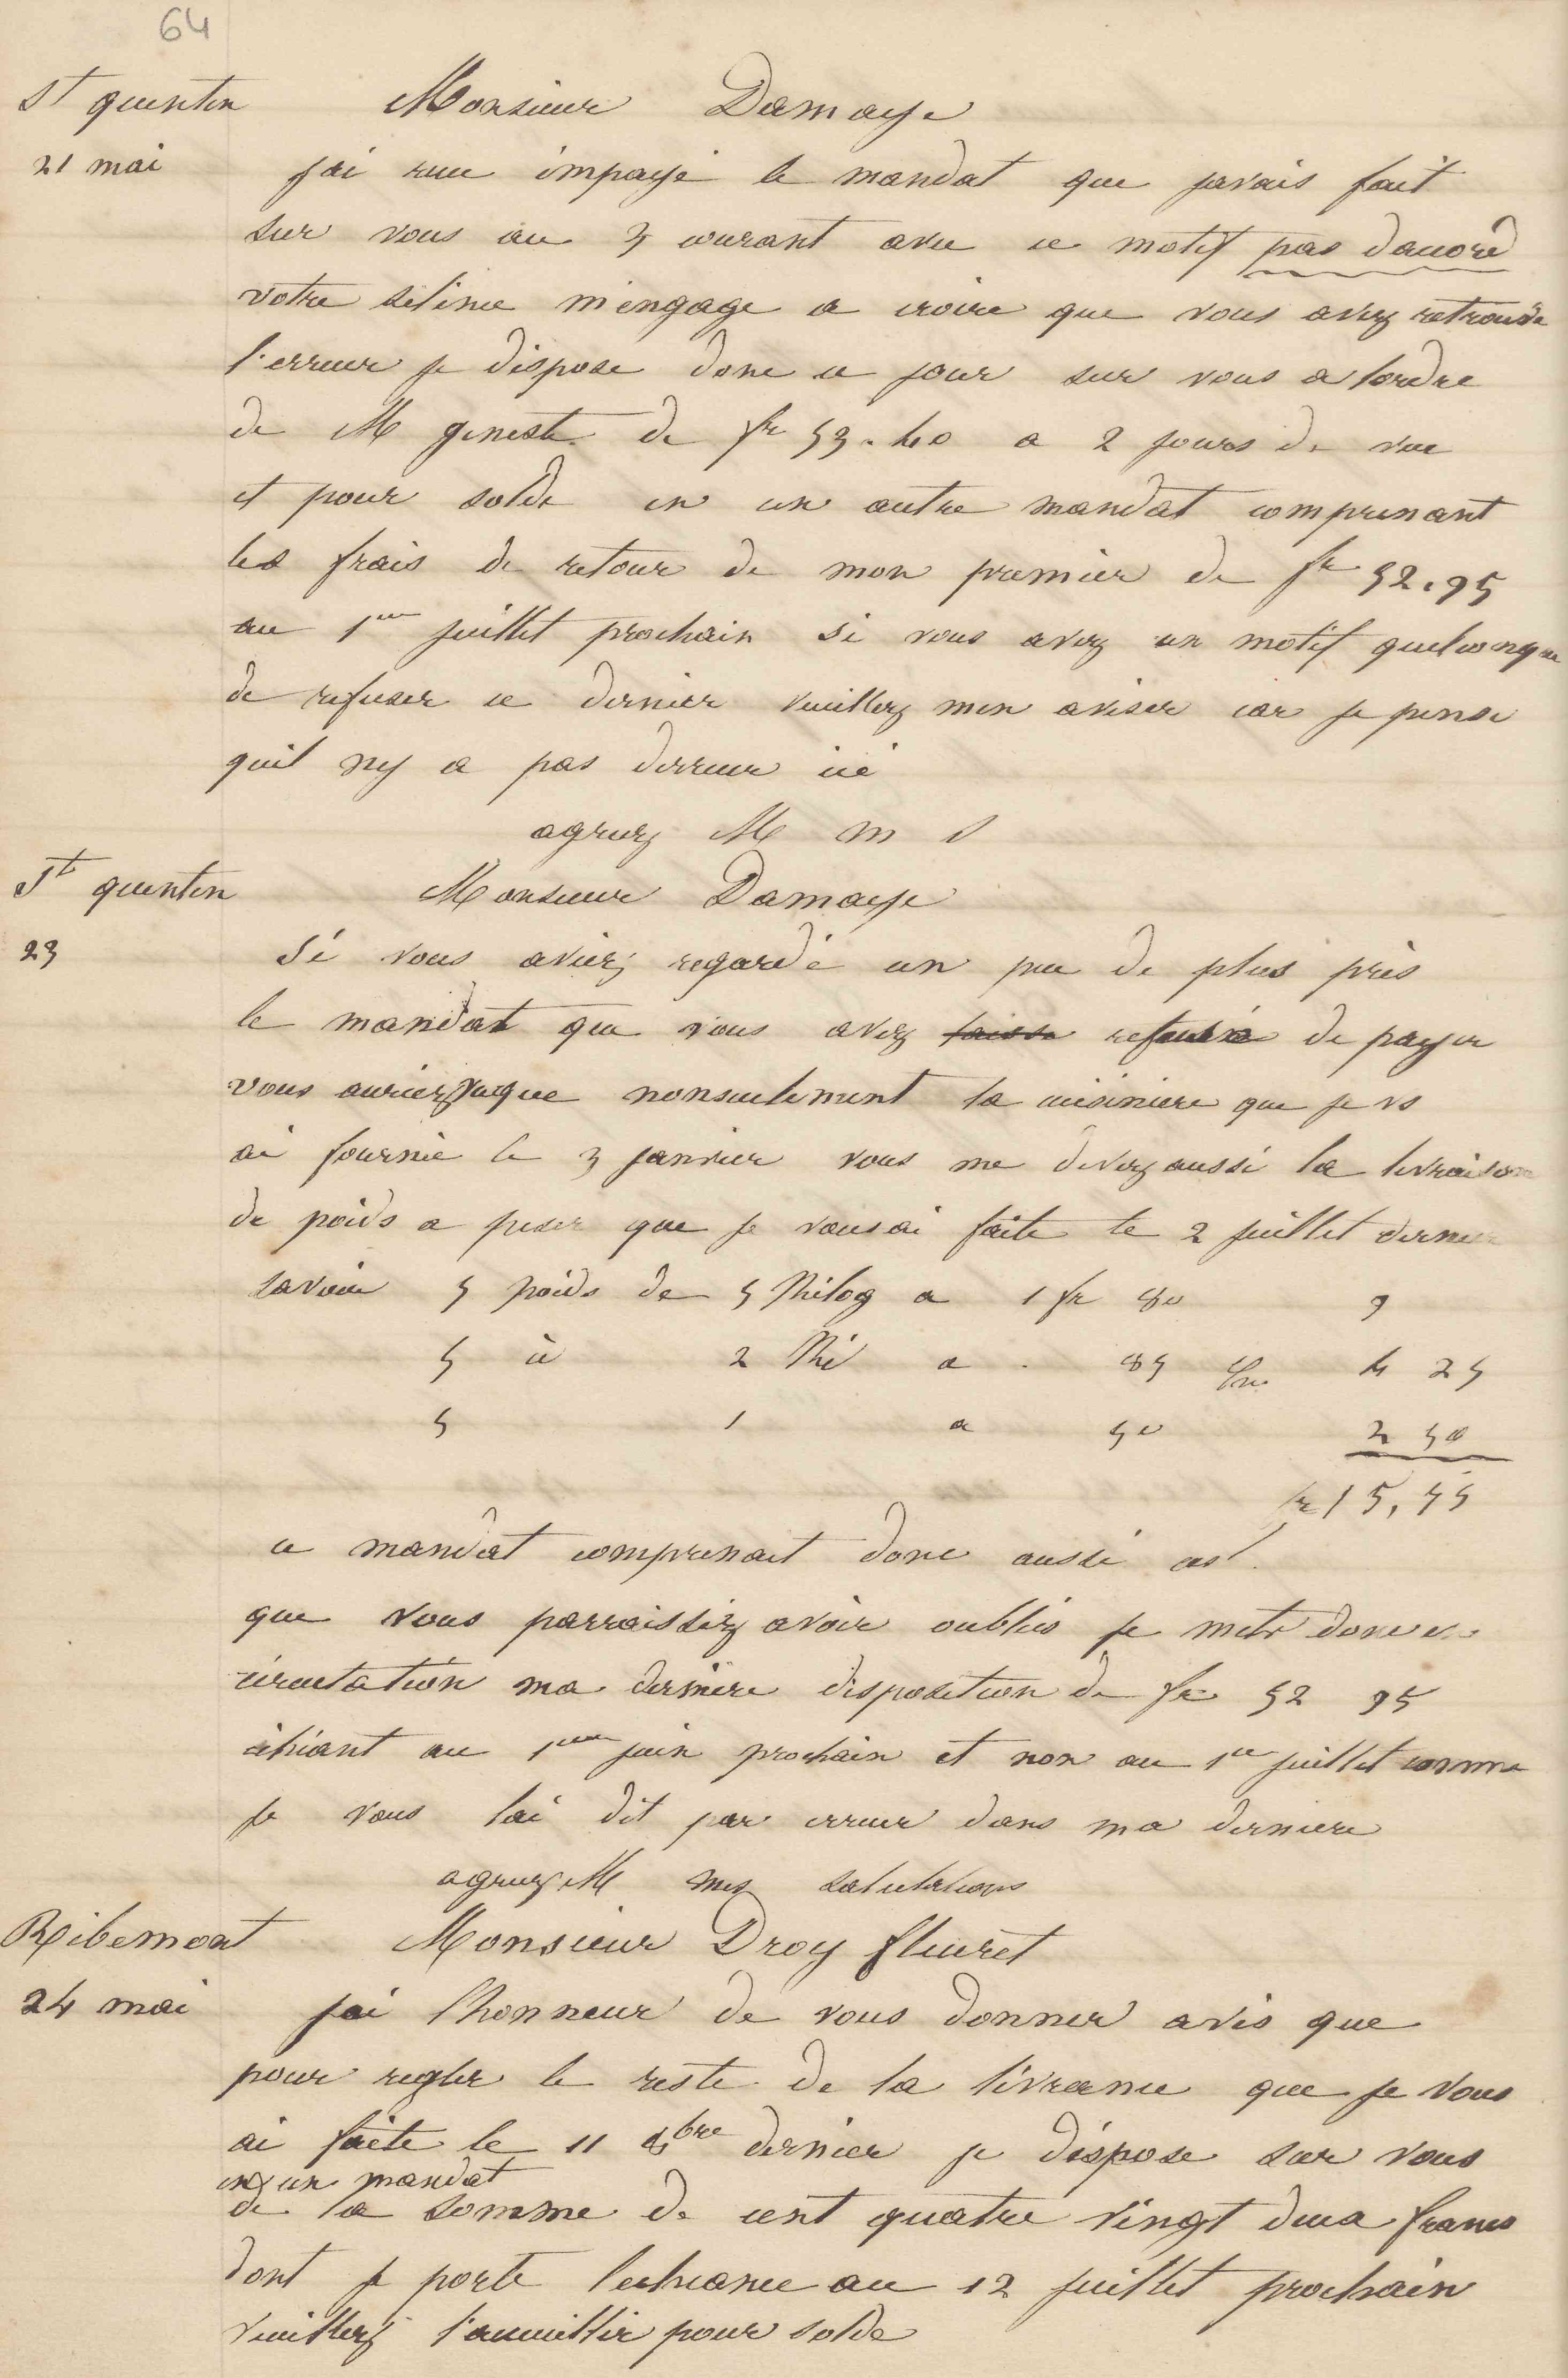 64
St quentin Monsieur Damaye
21 mai jai recu impayé le mandat que javais fait
sur vous au 5 courant avec ce motif pas daccord
votre silence m'engage a croire que vous avez retrouvé
l'erreur je dispose donc ce jour sur vous a lordre
de M geneste de fr 53.40 a 2 jours de vue
et pour solde en un autre mandat comprenant
les frais de retour de mon premier de fr 52.95
au 1er juillet prochain si vous avez un motif quelconque
de refuser ce dernier veuillez men aviser car je pense
quil ny a pas derreur ici
agreez M m s
St quentin Monsieur Damaye
23 Si vous aviez regardé un peu de plus près
le mandat que vous avez laisse refusé de payer
vous auriez vu que nonseulement la cuisiniere que je vs
ai fournie le 5 janvier vous me devez aussi la livraison
de poids a peser que je vous ai faite le 2 juillet dernier
savoir 5 poids de 5 Kilog a 1 fr 80 9
5 id 2 Ki a . 85 4 25
5 1 a 50 2 50
fr 15,75
ce mandat comprenait donc aussi cet
que vous parraissiez avoir oubliés je mets donc en
circulation ma derniere disposition de fr 52 95
échéant au 1er juin prochain et non au 1er juillet comme
je vous lai dit par erreur dans ma derniere
agreez M mes salutations
Ribemont Monsieur Droy fleuret
24 mai jai l'honneur de vous donner avis que
pour regler le reste de la livrance que je vous
ai faite le 11 8bre dernier je dispose sur vous
en un mandat
de la somme de cent quatre vingt deux francs
dont je porte lecheance au 12 juillet prochain
veuillez l'accueillir pour solde